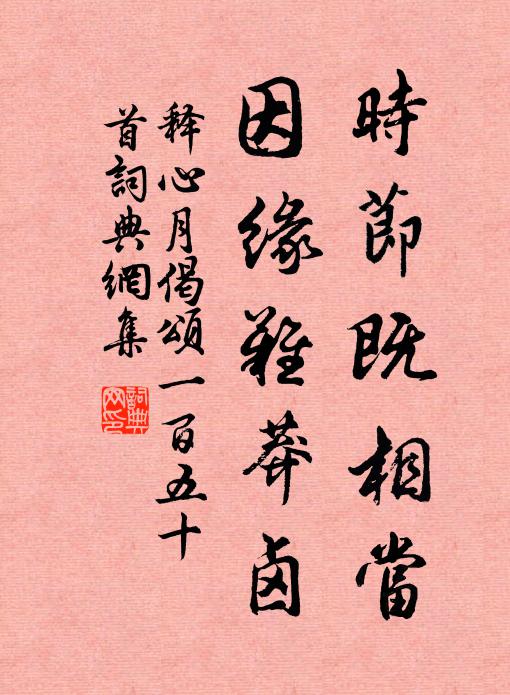 時節既相當
因緣難莽鹵
释心月偈頌一百五十
首詞典網集
詞典
网印